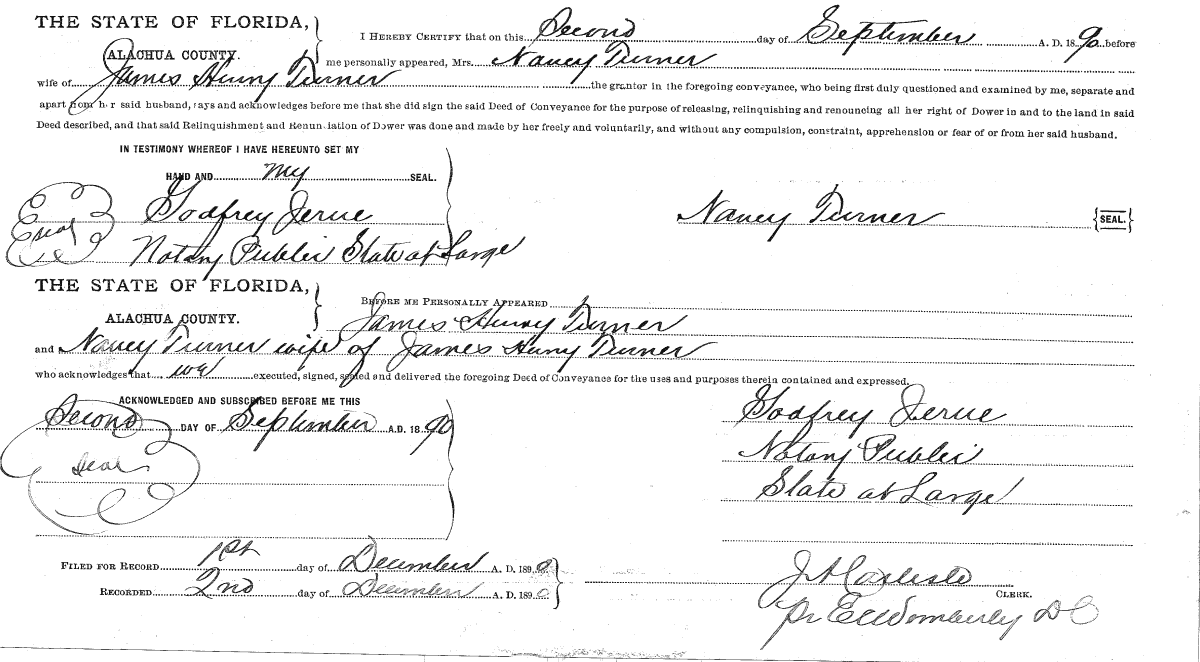 THE STATE OF FLORIDA,
ALACHUA COUNTY.
I HEREBY CERTIFY that on this Second day of September A. D. 1890 before
me personally appeared, Mrs. Nancy Turner
wife of James Henry Turner the grantor in the foregoing conveyance, who being first duly questioned and examined by me, separate and
apart from her said husband, says and acknowledges before me that she did sign the said Deed of Conveyance for the purpose of releasing, relinquishing and renouncing all her right of Dower in and to the land in said
Deed described, and that said Relinquishment and Renunciation of Dower was done and made by her freely and voluntarily, and without any compulsion, constraint, apprehension or fear of or from her said husband.
IN TESTIMONY WHEREOF I HAVE HEREUNTO SET MY
HAND AND my SEAL.
Seal
Godfrey Jerue
Notary Public State at Large
Nancy Turner {SEAL.}
THE STATE OF FLORIDA,
ALACHUA COUNTY.
BEFORE ME PERSONALLY APPEARED
James Henry Turner
and Nancy Turner wife of James Henry Turner
who acknowledges that we executed, signed, sealed and delivered the foregoing Deed of Conveyance for the uses and purposes therein contained and expressed.
ACKNOWLEDGED AND SUBSCRIBED BEFORE ME THIS
Second DAY OF September A.D. 1890
Seal
Godfrey Jerue
Notary Public
State at Large
FILED FOR RECORD 1st day of December A. D. 1890
RECORDED 2nd day of December A. D. 1890
J A Carlisle CLERK.
Pr E W Womberly D C